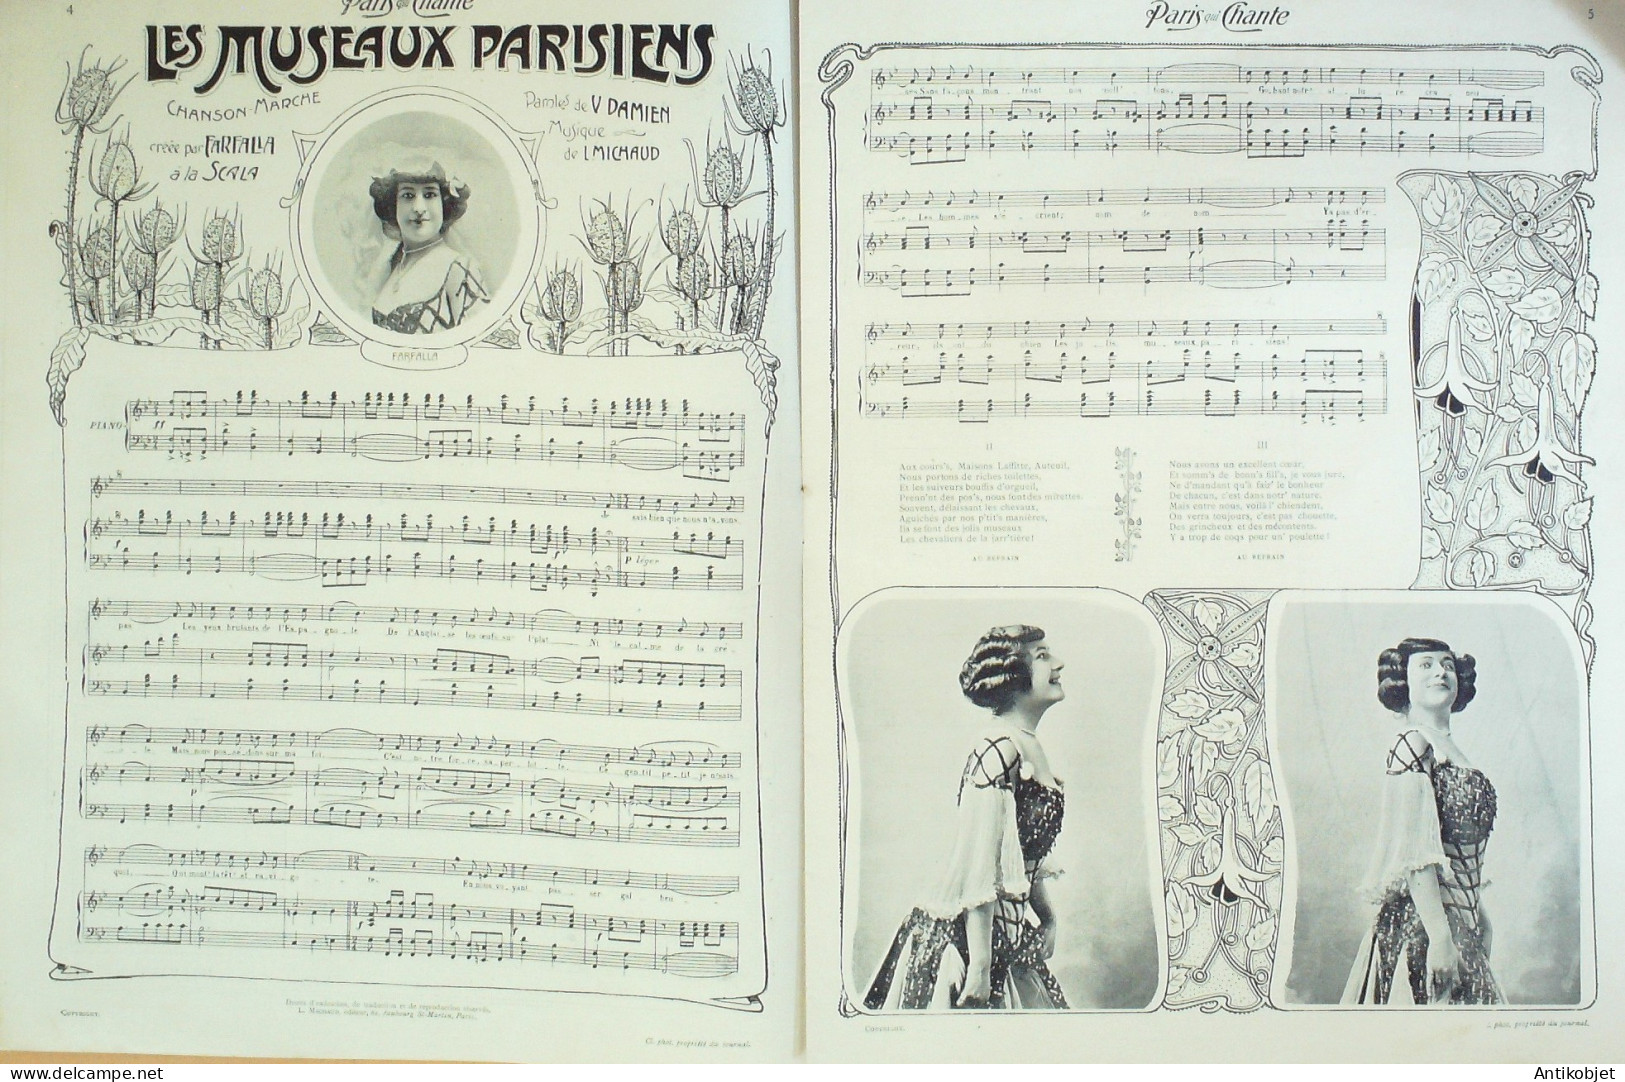 4
Paris qui Chante
LES MUSEAUX PARISIENS
CHANSON-MARCHE
créée par FARFALLA
à la SCALA
Paroles de V. DAMIEN
Musique
de L. MICHAUD
FARFALLA
PIANO
ff
sais bien que nous n'a_vons
f
p léger
pas Les yeux brulants de l'Es_pa_gno_le De l'Anglai_se les œufs sur l'plat Ni le cal_me de la cré_
o_le Mais nous pos_sé_dons sur ma foi C'est no_tre for_ce sa_per_lot_te Ce gen_til pe_tit je n'sais
p
quoi, Qui mont' la têt' et ra_vi_go_te. En nous vo_yant pas_ser
f
Droits d'exécution, de traduction et de reproduction réservés.
Faubourg St-Martin, Paris.
COPYRIGHT.
Cl. phot. propriété du journal.
Paris qui Chante
5
Sans fa_çons mon_trant nos
Les hom_mes s'é_crient; nom de nom Y a pas d'er_
f
reur, ils ont du chien Les jo_lis mu_seaux pa_ri_siens!
II
Aux cours's, Maisons Laffitte, Auteuil,
Nous portons de riches toilettes,
Et les suiveurs bouffis d'orgueil,
Prenn'nt des pos's, nous font des mirettes.
Souvent, délaissant les chevaux,
Aguichés par nos p'tit's manières,
Ils se font des jolis museaux
Les chevaliers de la jarr'tière!
AU REFRAIN
III
Nous avons un excellent cœur,
Et somm's de bonn's fill's, je vous jure,
Ne d'mandant qu'à fair' le bonheur
De chacun, c'est dans notr' nature.
Mais entre nous, voilà l' chiendent,
On verra toujours, c'est pas chouette,
Des grincheux et des mécontents.
Y a trop de coqs pour un' poulette!
AU REFRAIN
COPYRIGHT.
phot. propriété du journal.
Antikobjet